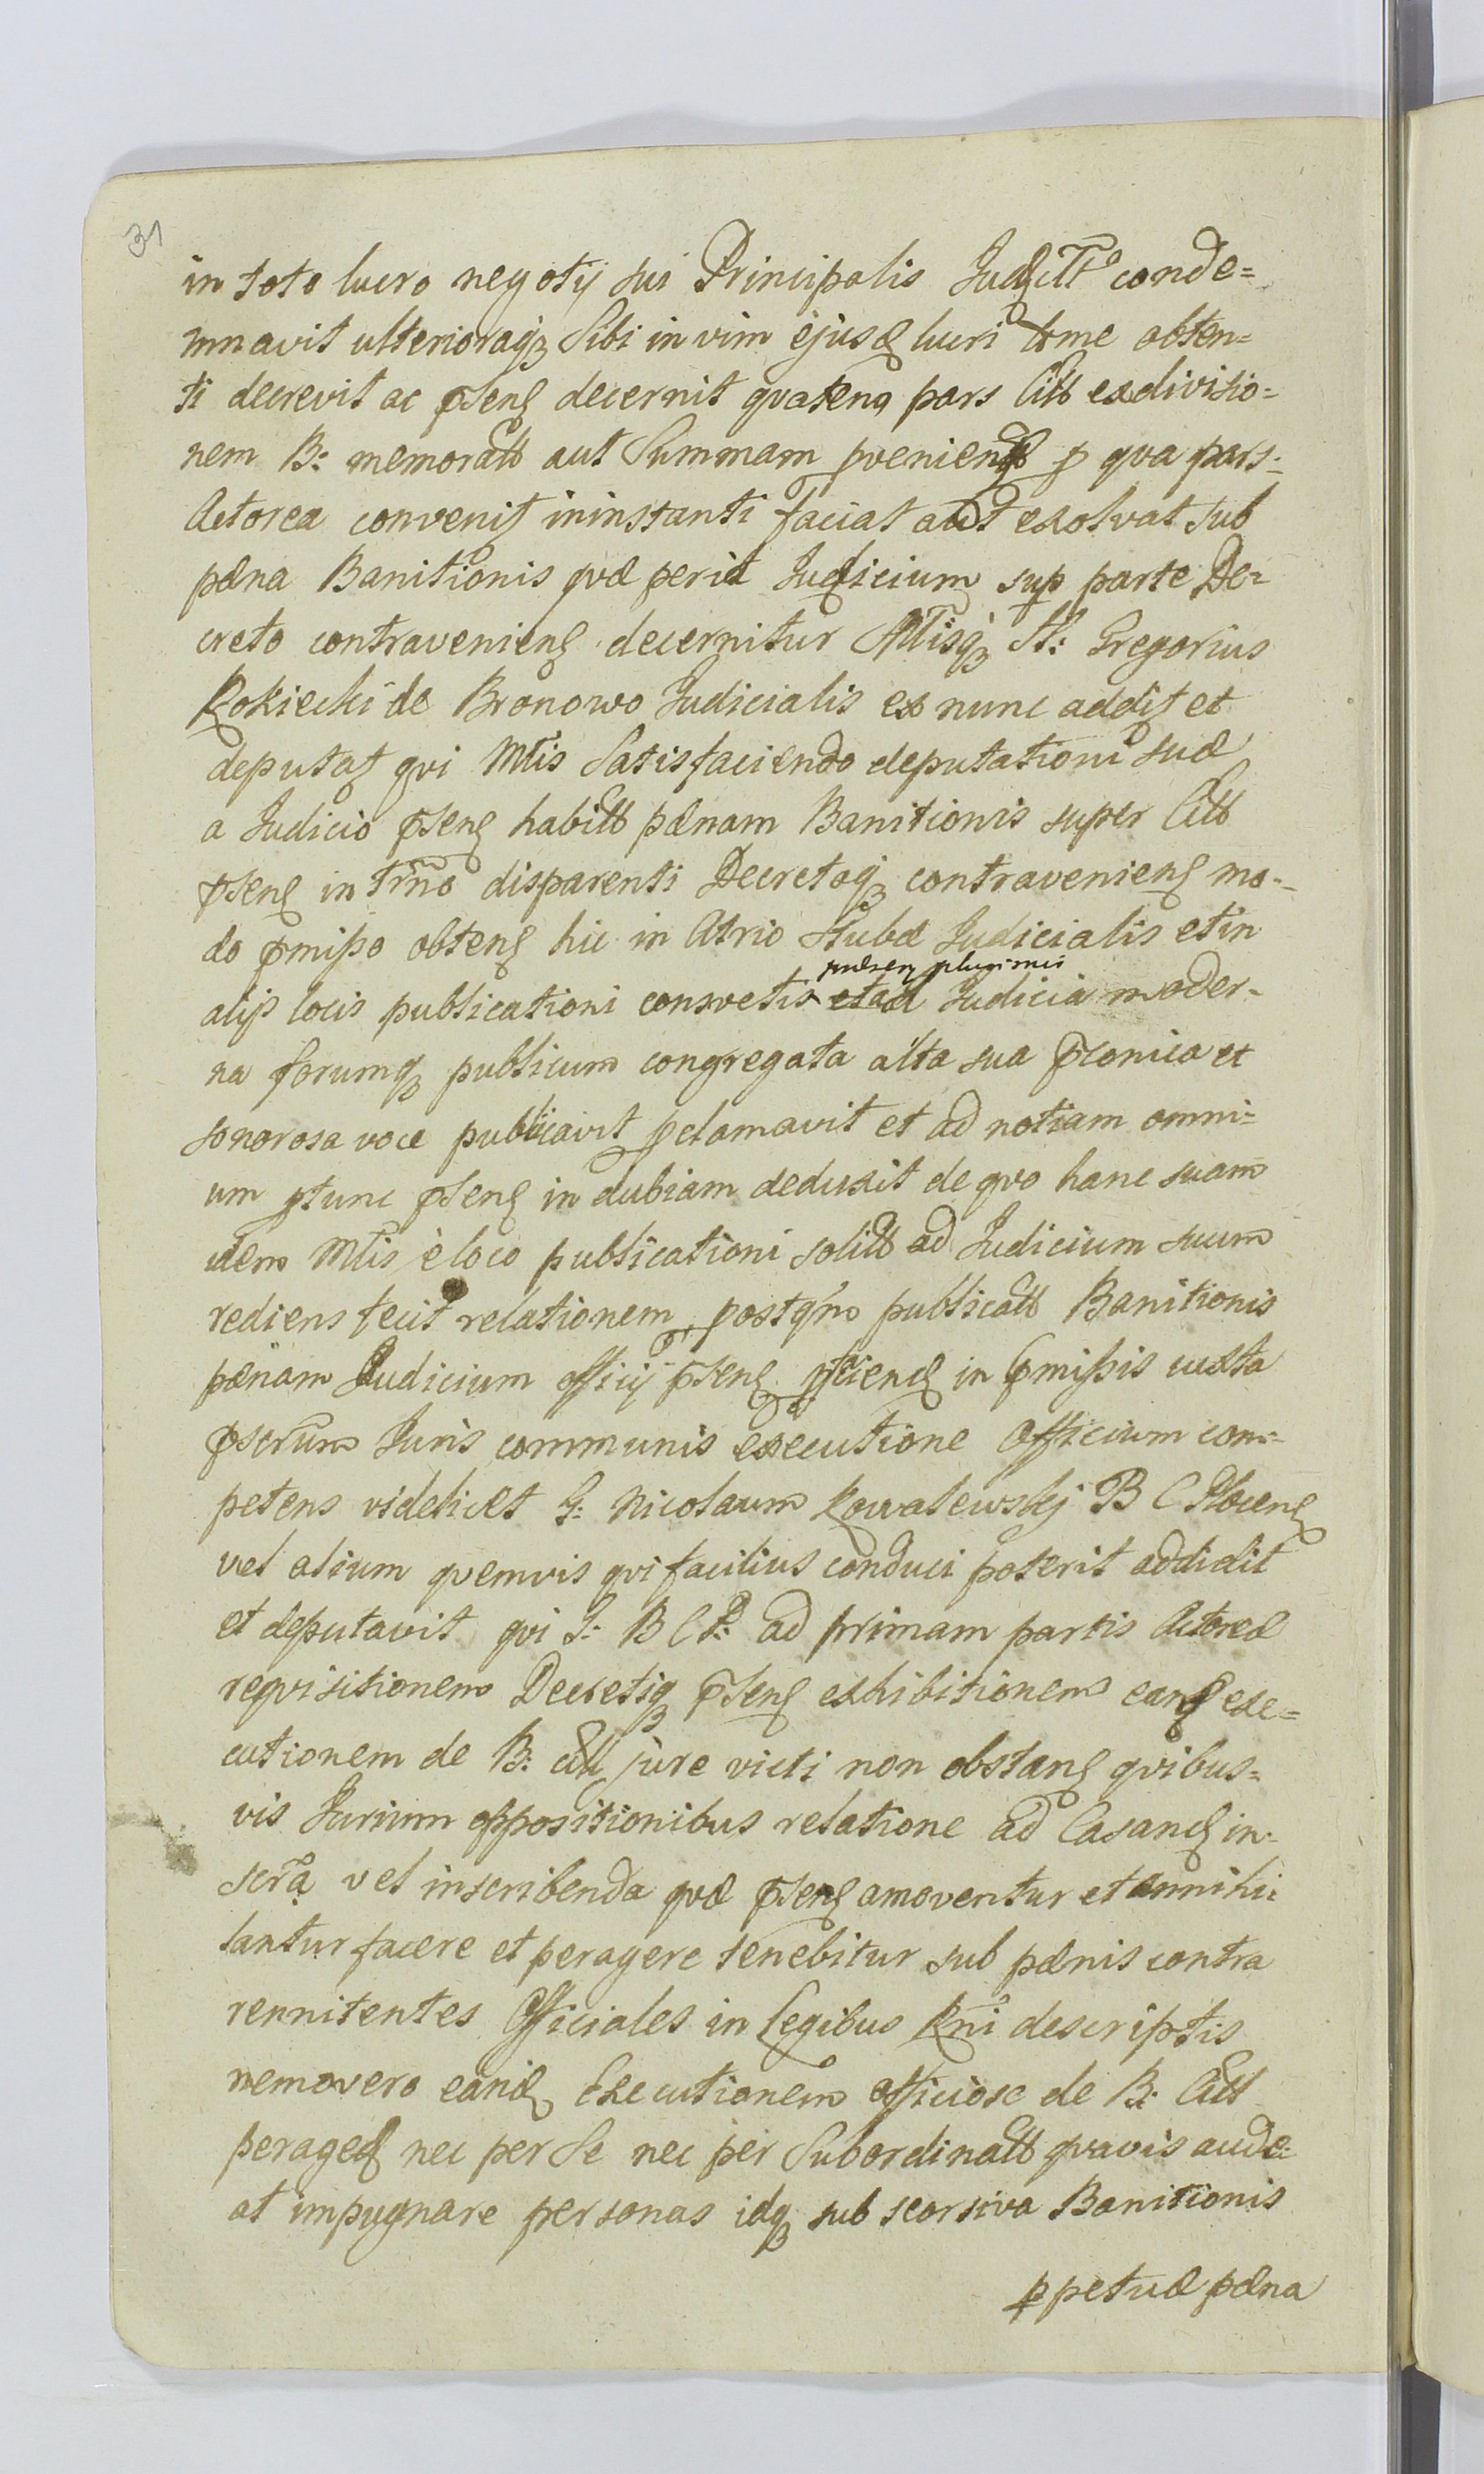 31
in toto lucro negotij sui Principalis Judltt conde=
mnavit ulterioraqꝫ Sibi in vim ejusd lucri tme obten=
ti decrevit ac pntens decernit qvatenq pars Citt exdivisio=
nem B: memoratt aut Summam pveniend p qva pars
Actorea convenit ininstanti faciat aut exolvat sub
pæna Banitionis qvæ perid Judicium sup parte De=
creto contraveniens decernitur Mtisqꝫ St: Gregorius
Rokiecki de Bronowo Judicialis ex nunc addit et
deputat qvi Mtis Satisfaciendo deputationi suæ
a Judicio pntens habitt pænam Banitionis super Citt
pntens in Trno disparenti Decretoqꝫ contraveniens mo=
do pmißo obtens hic in Atrio Stubæ Judicialis et in
alijs locis publicationi consvetis
plurimis
etad Judicia moder=
na forumqꝫ publicum congregata alta sua pconica et
sonorosa voce publicavit pclamavit et ad notiam omni=
um ptunc pntens in dubiam deduxit de qvo hanc suam
idem Mtis è loco publicationi solitt ad Judicium suum
rediens fecit relationem, postqm publicatt Banitionis
pænam Judicium officij pntens pficiend in pmißis iuxta
pscrum Juris communis executione Officium com=
petens videlicet G: Nicolaum Kowalewskj B C Plocens
vel alium qvemvis qvi facilius conduci poterit addidit
et deputavit qvi G: B C P: ad primam partis Actoreæ
reqvisitionem Decretiqꝫ pntens exhibitionem eand exe=
cutionem de B: citt jure victi non obstans qvibus=
vis Jurium oppositionibus relatione ad Casand in=
scra vel inscribenda qvæ pntens amoventur et annihi=
lantur facere et peragere tenebitur sub pænis contra
rennitentes Officiales in Legibus Rni descriptis
nemovero eand Executionem officiose de B: Citt
peraged nec per Se nec per Subordinatt qvavis aude=
at impugnare personas idqꝫ sub seorsiva Banitionis
ppetuæ pæna